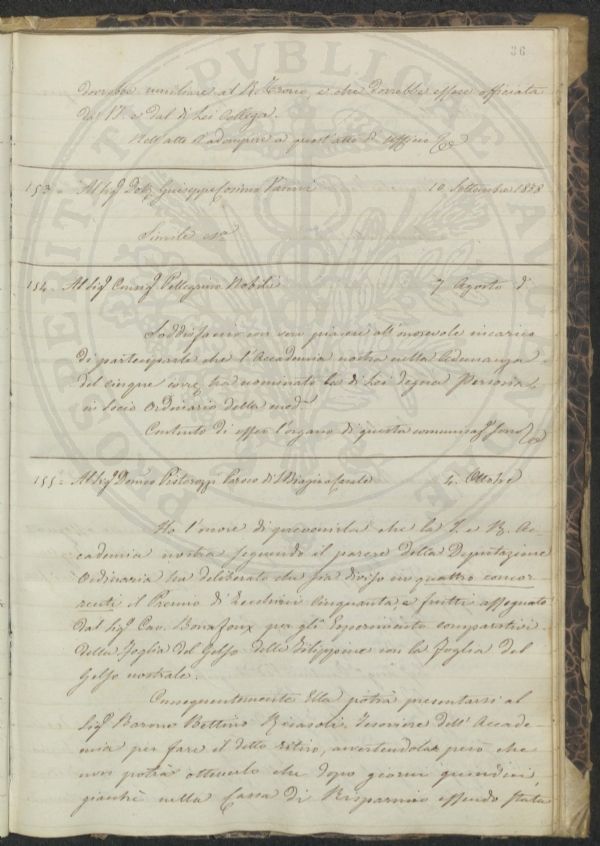 36
dovrebbe umiliare al R. Trono, e che dovrebbe essere officiata
da V. e dal di Lei Collega.
Nell'atto di adempire a quest'atto di Ufficio
153 = Al Sig.r Dott. Giuseppe Cosimo Vanni 10 Settembre 1838
Simile
154 = Al Sig.r Consig.r Pellegrino Nobili 7 Agosto d.o
Soddisfaccio con vero piacere all'onorevole incarico
di parteciparle che l'Accademia nostra nella Adunanza
del cinque corr.e ha nominato la di Lei degna Persona
in Socio Ordinario della med.a
Contento di esser l'organo di questa comunicaz.e sono
155 = Al Sig.r Domco Pistorozzi Paroco di Casale 4. Ottobre
Ho l'onore di prevenirla che la I. e R. Ac-
cademia nostra seguendo il parere della Deputazione
Ordinaria ha deliberato che sia diviso in quattro concor-
renti il Premio di Zecchini Cinquanta, e frutti assegnato
dal Sig.r Cav. Bonafoux per gli Esperimenti comparativi
della Foglia del Gelso delle Filippine con la Foglia del
Gelso nostrale.
Conseguentemente Ella potrà presentarsi al
Sig.r Barone Bettino Ricasoli, Tesoriere dell'Accade-
mia per fare il detto ritiro, avvertendola però che
non potrà ottenerlo che dopo giorni quindici,
giacchè nella Cassa di Risparmio essendo stata